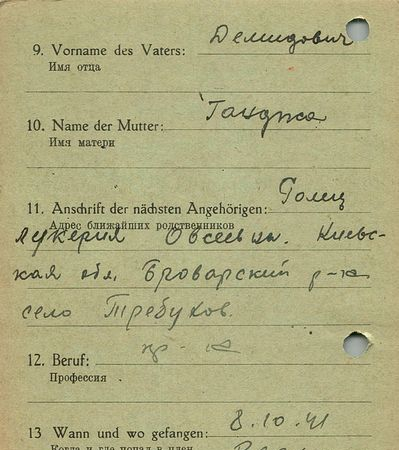 9. Vorname des Vaters: Демидович
Имя отца
10. Name der Mutter: Ганджа
Имя матери
11. Anschrift der nächsten Angehörigen: Голец
Адрес ближайших родственников
Лукерия Овсеевна. Киевс-
кая обл. Броварский р-н
село Требухов.
12. Beruf:
Профессия
13 Wann und wo gefangen: 8.10.41
Когда и где попал в плен